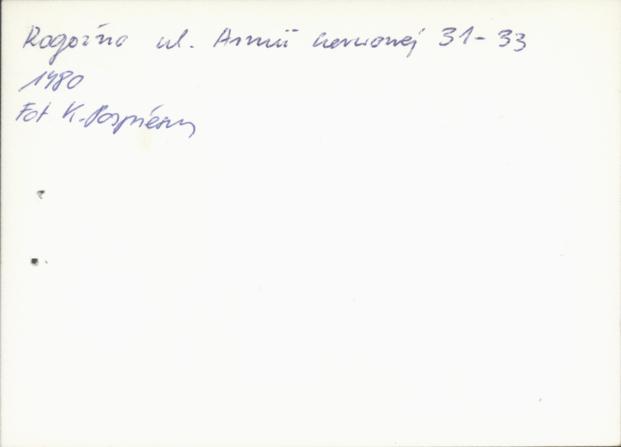 Rogoźno ul. Armii Czerwonej 31-33
1980
Fot K. Pospieszny